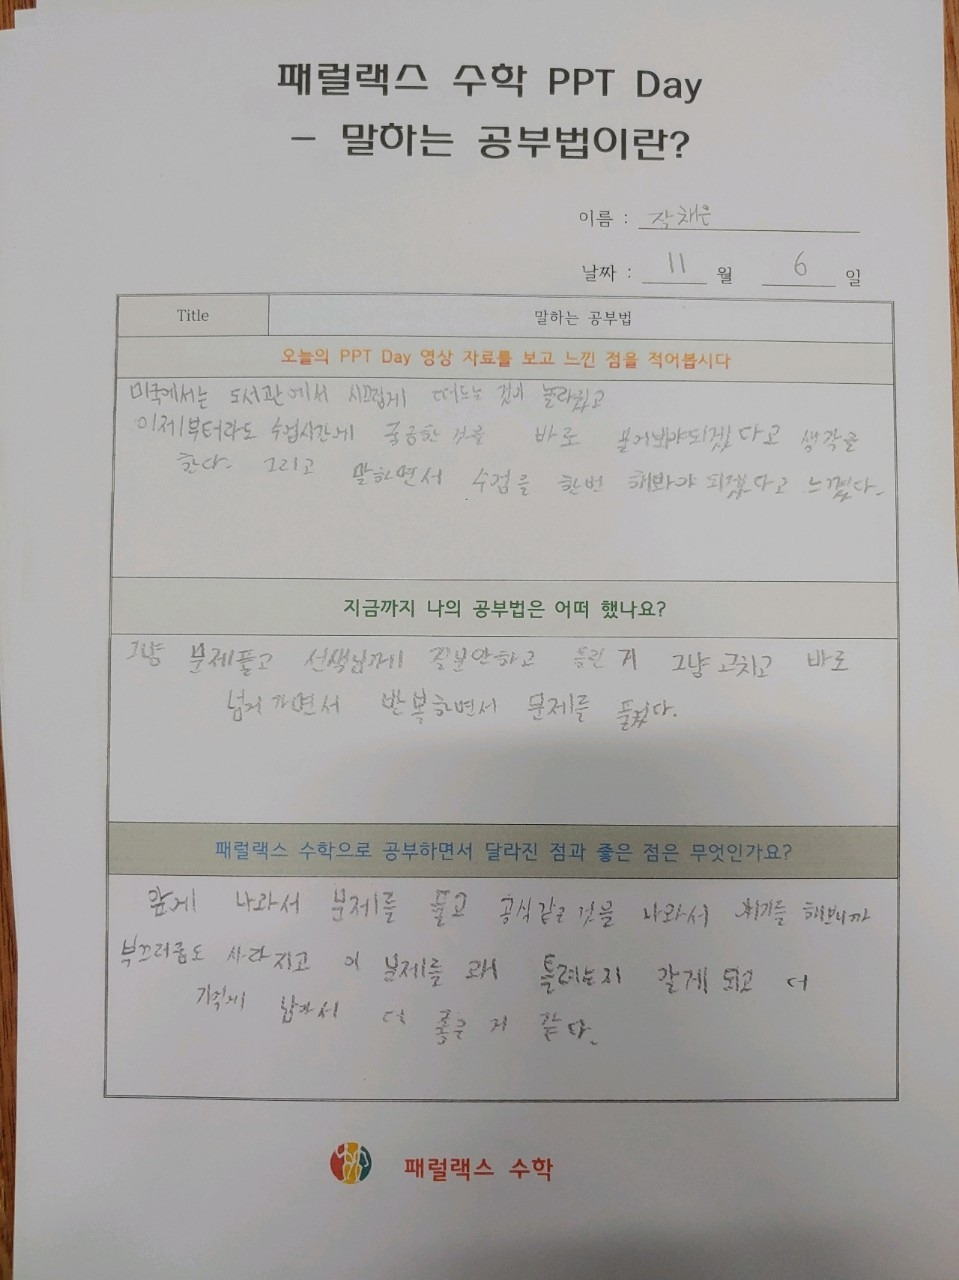 패럴랙스 수학 PPT Day
- 말하는 공부법이란?
이름 : 채은
날짜 : 11 월 6 일
Title 말하는 공부법
오늘의 PPT Day 영상 자료를 보고 느낀 점을 적어봅시다
미국에서는 도서관에서 시끄럽게 떠드는 것이 놀라웠고
이제부터라도 수업시간에 궁금한 것을 바로 물어봐야되겠다고 생각을
한다. 그리고 말하면서 수업을 한번 해봐야 되겠다고 느꼈다.
지금까지 나의 공부법은 어떠 했나요?
그냥 문제풀고 선생님께 질문안하고 틀린 거 그냥 고치고 바로
넘어가면서 반복하면서 문제를 풀었다.
패럴랙스 수학으로 공부하면서 달라진 점과 좋은 점은 무엇인가요?
앞에 나와서 문제를 풀고 공식같은 것을 나와서 해보니까
부끄러움도 사라지고 이 문제를 왜 틀렸는지 알게 되고 더
기억에 남아서 더 좋은 거 같다.
패럴랙스 수학